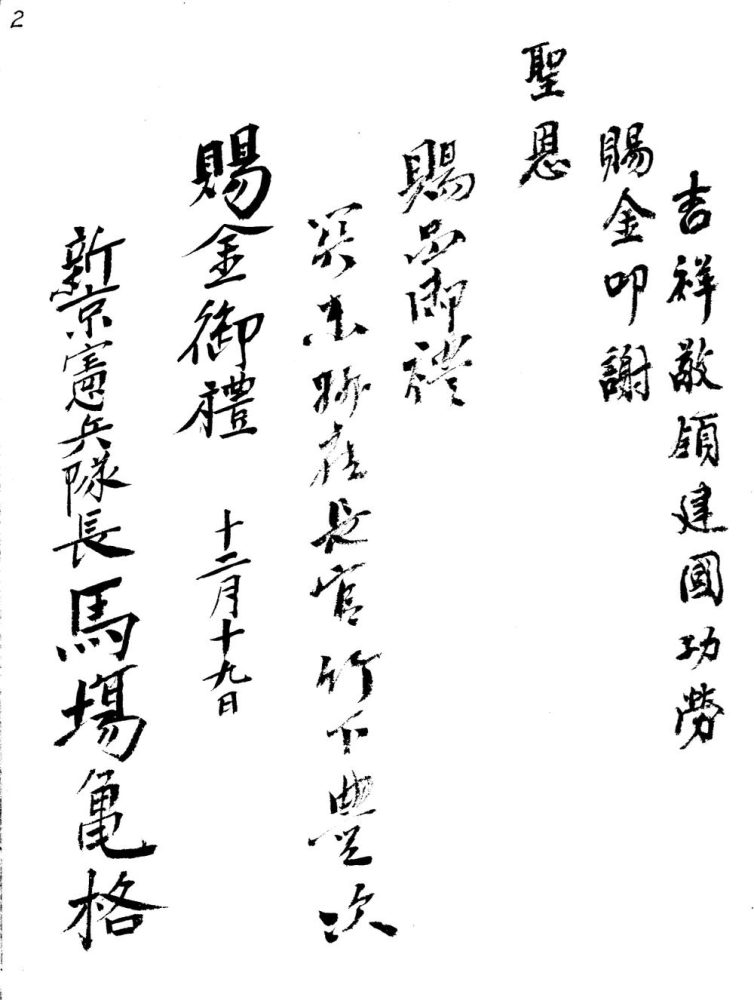 2
吉祥敬領建國功勞
賜金叩謝
聖恩
賜品御禮
関東 長官竹下豊次
賜金御禮 十二月十九日
新京憲兵隊長馬場亀格